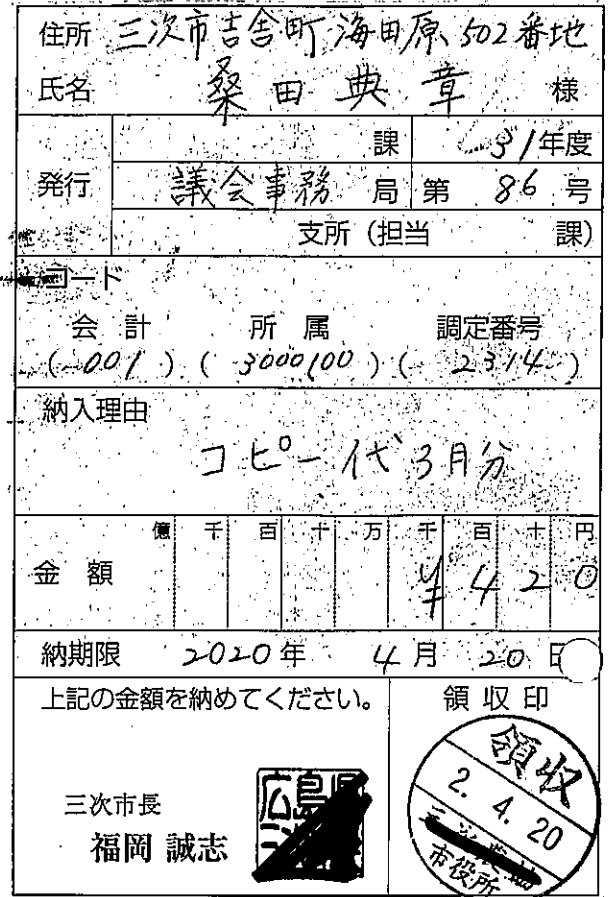 住所 三次市吉舎町海田原502番地
氏名 桑田典章 様
課 31年度
発行 議会事務 局 第 86 号
支所(担当 課)
コード
会計 所属 調定番号
(001) (3000100) (2314)
納入理由
コピー代3月分
億 千 百 十 万 千 百 十 円
金額 ¥420
納期限 2020年 4月 20日
上記の金額を納めてください。
領収印
三次市長
福岡 誠志
広島県
領収
2. 4. 20
市役所